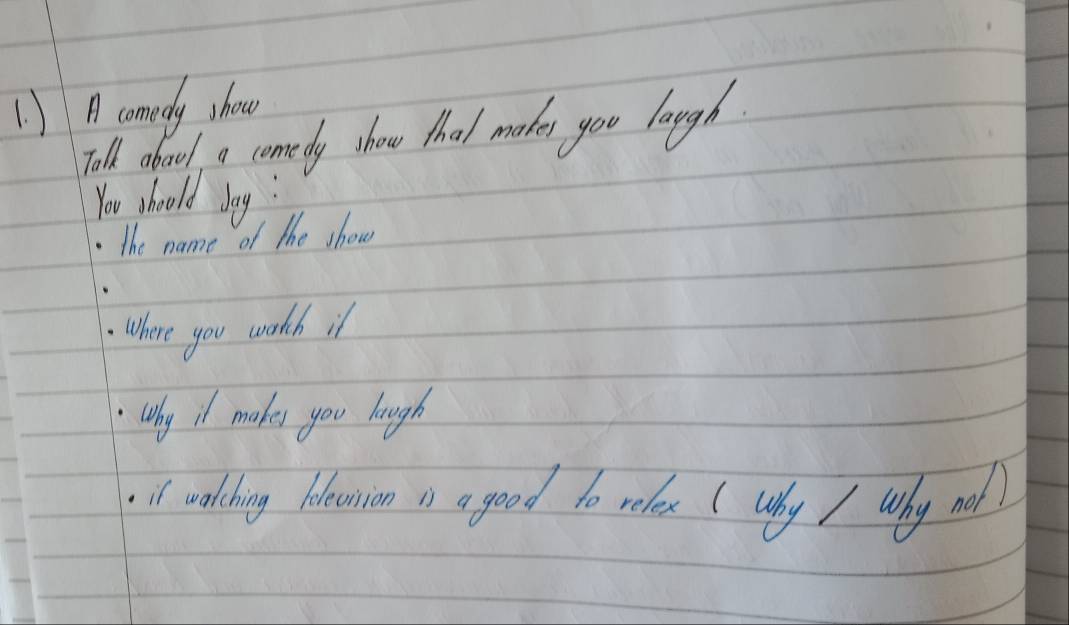 1.) A comedy show
Talk about a comedy show that makes you laugh.
You should say:
• the name of the show
•
• Where you watch it
• Why it makes you laugh
• if watching television is a good to relex ( Why / Why not )